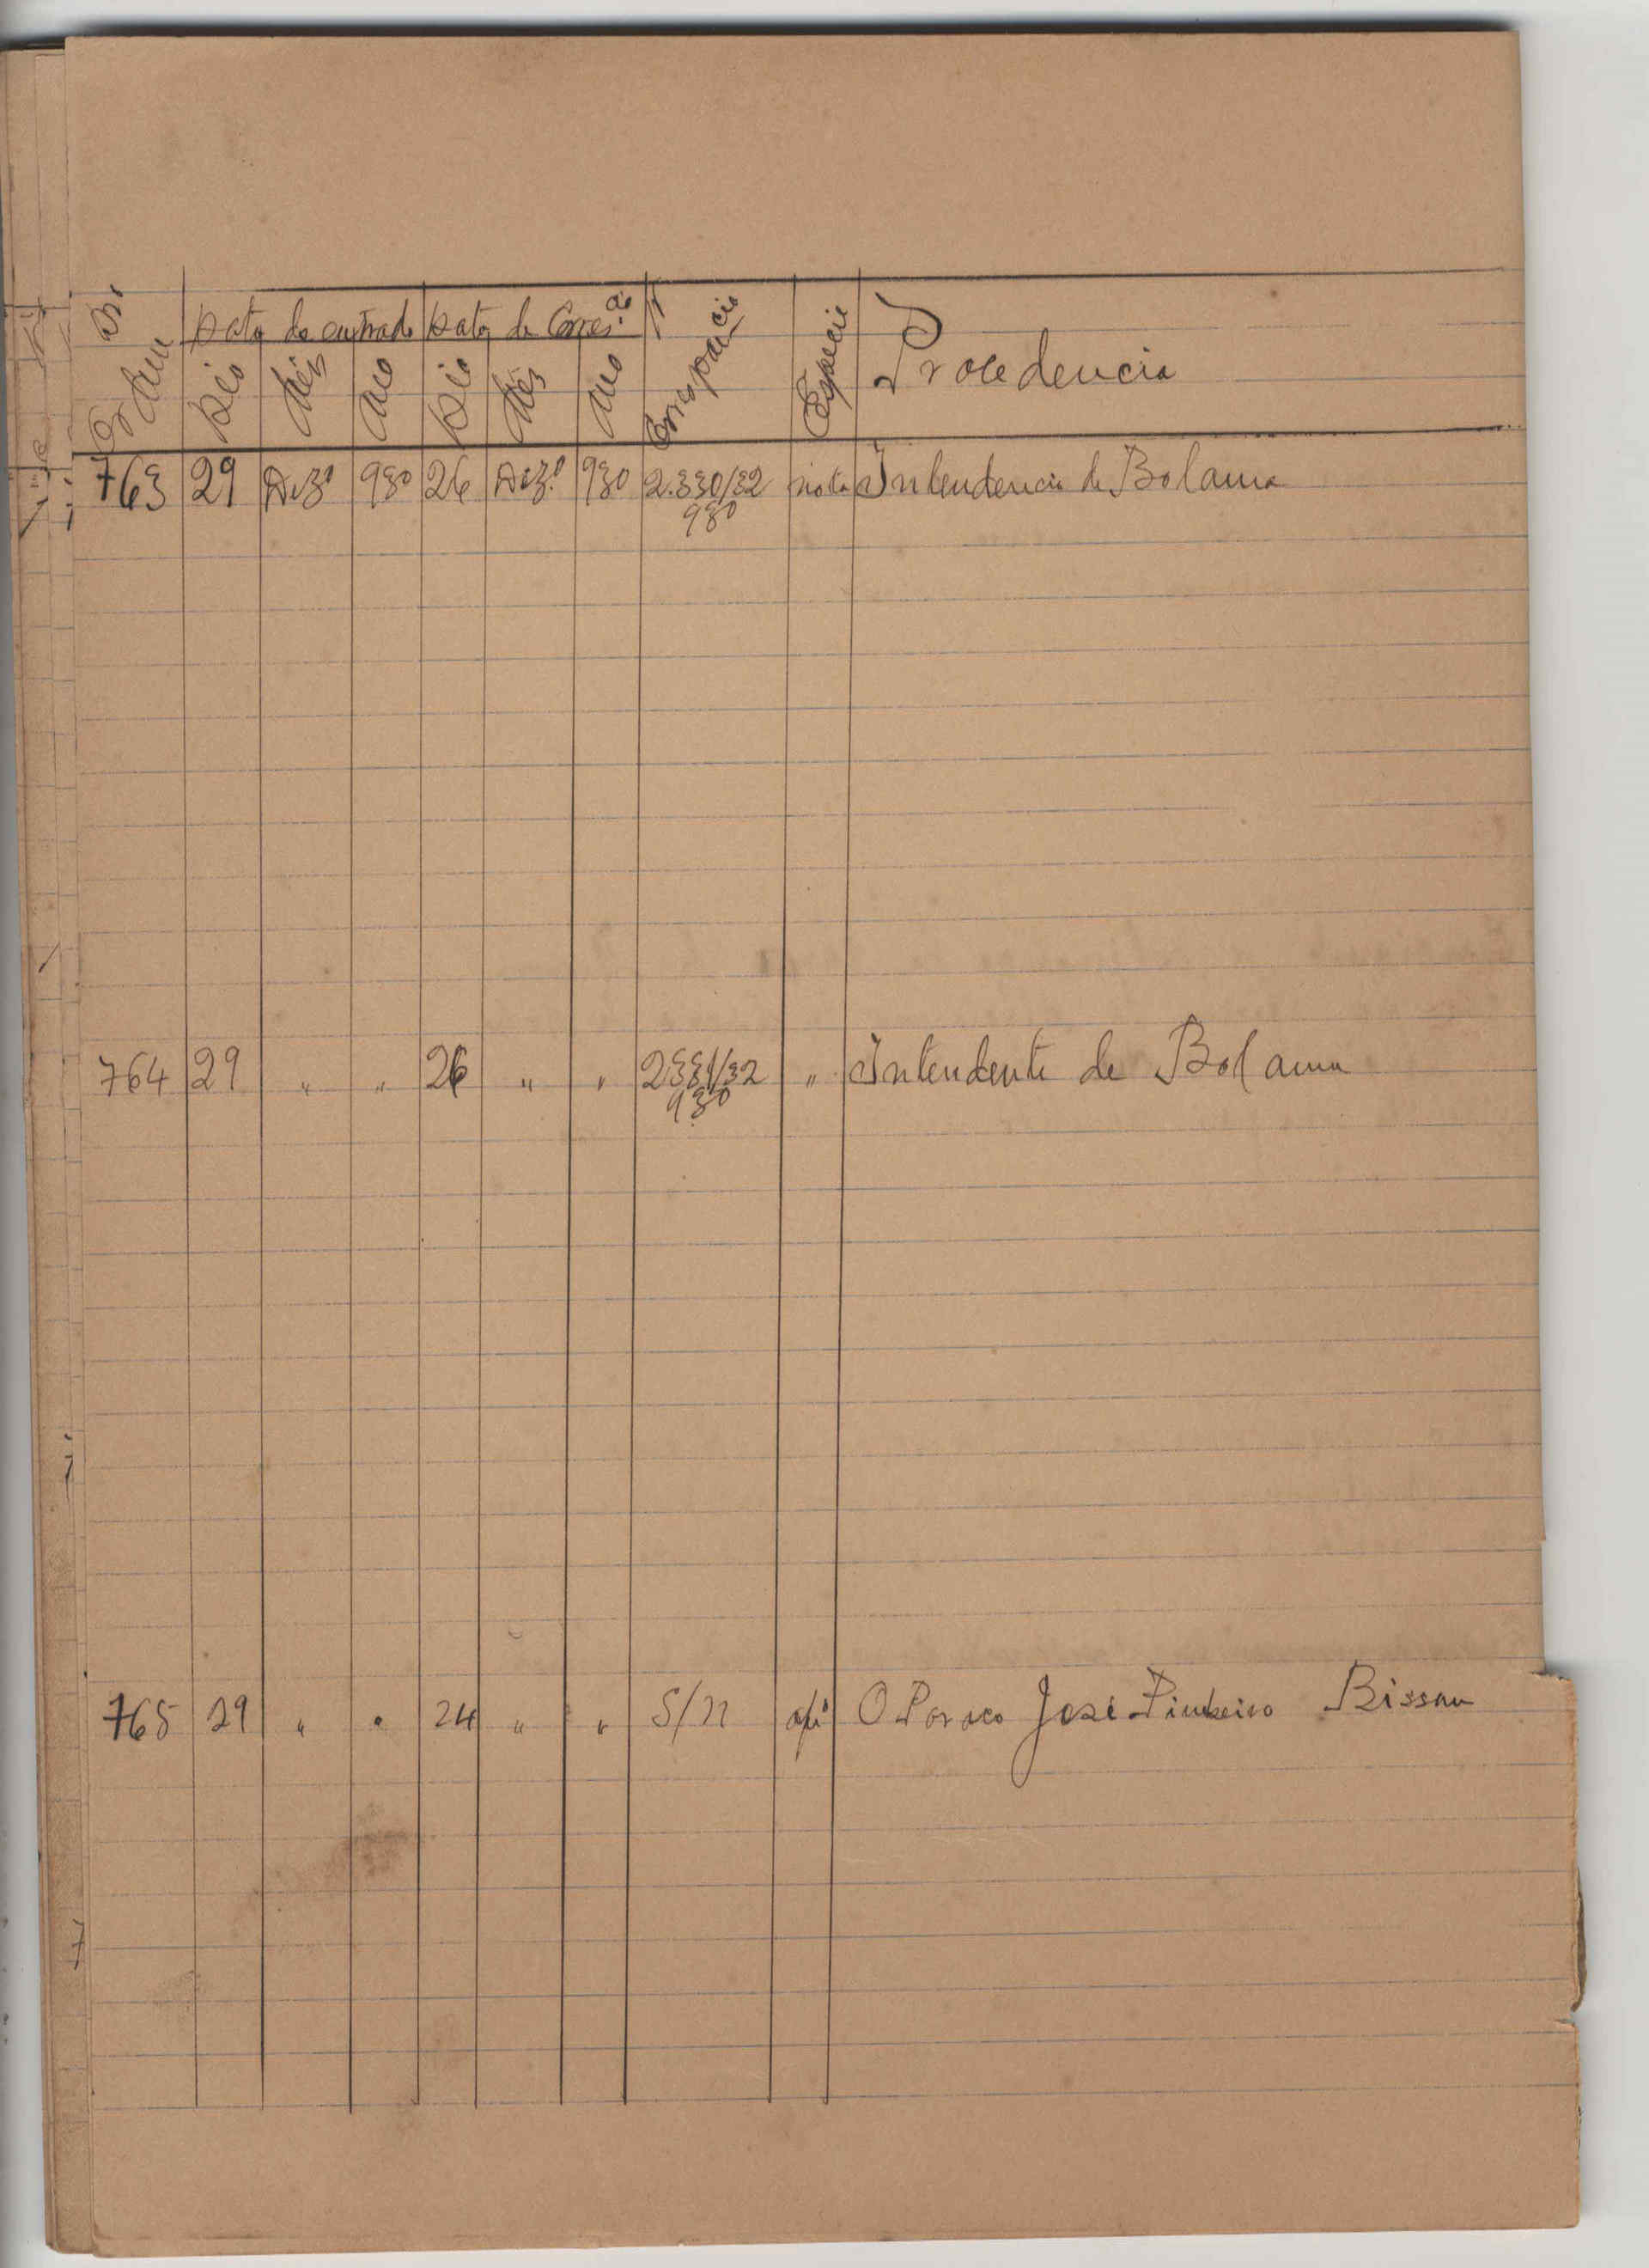 Nº Ordem
Data da entrada Data da Corres.ão Nº Correspondcia Especie Procedencia
Dia Mês Ano Dia Mês Ano
763 29 Dezº 930 26 Dez.º 930 2.330/32 nota Intendencia de Bolama
930
764 29 " " 26 " " 2331/32 " Intendente de Bolama
930
765 29 " " 24 " " S/n ofº O Paroco José Pinheiro Bissau